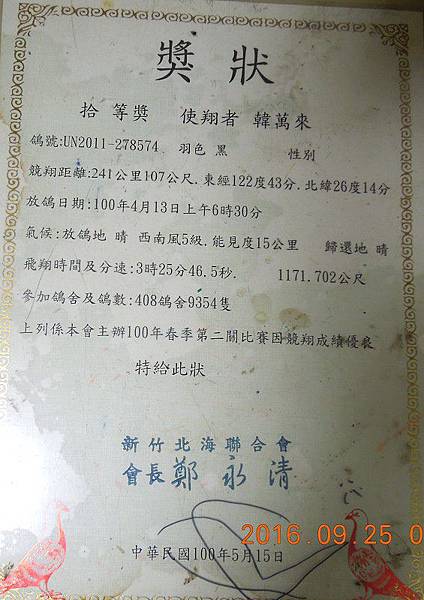 獎狀
拾 等獎 使翔者 韓萬來
鴿號:UN2011-278574 羽色 黑 性別
競翔距離:241公里107公尺.東經122度43分.北緯26度14分
放鴿日期:100年4月13日上午6時30分
氣候:放鴿地 晴 西南風5級.能見度15公里 歸還地 晴
飛翔時間及分速:3時25分46.5秒. 1171.702公尺
參加鴿舍及鴿數:408鴿舍9354隻
上列係本會主辦100年春季第二關比賽因競翔成績優良
特給此狀
新竹北海聯合會
會長鄭永清
2016.09.25 0
中華民國100年5月15日